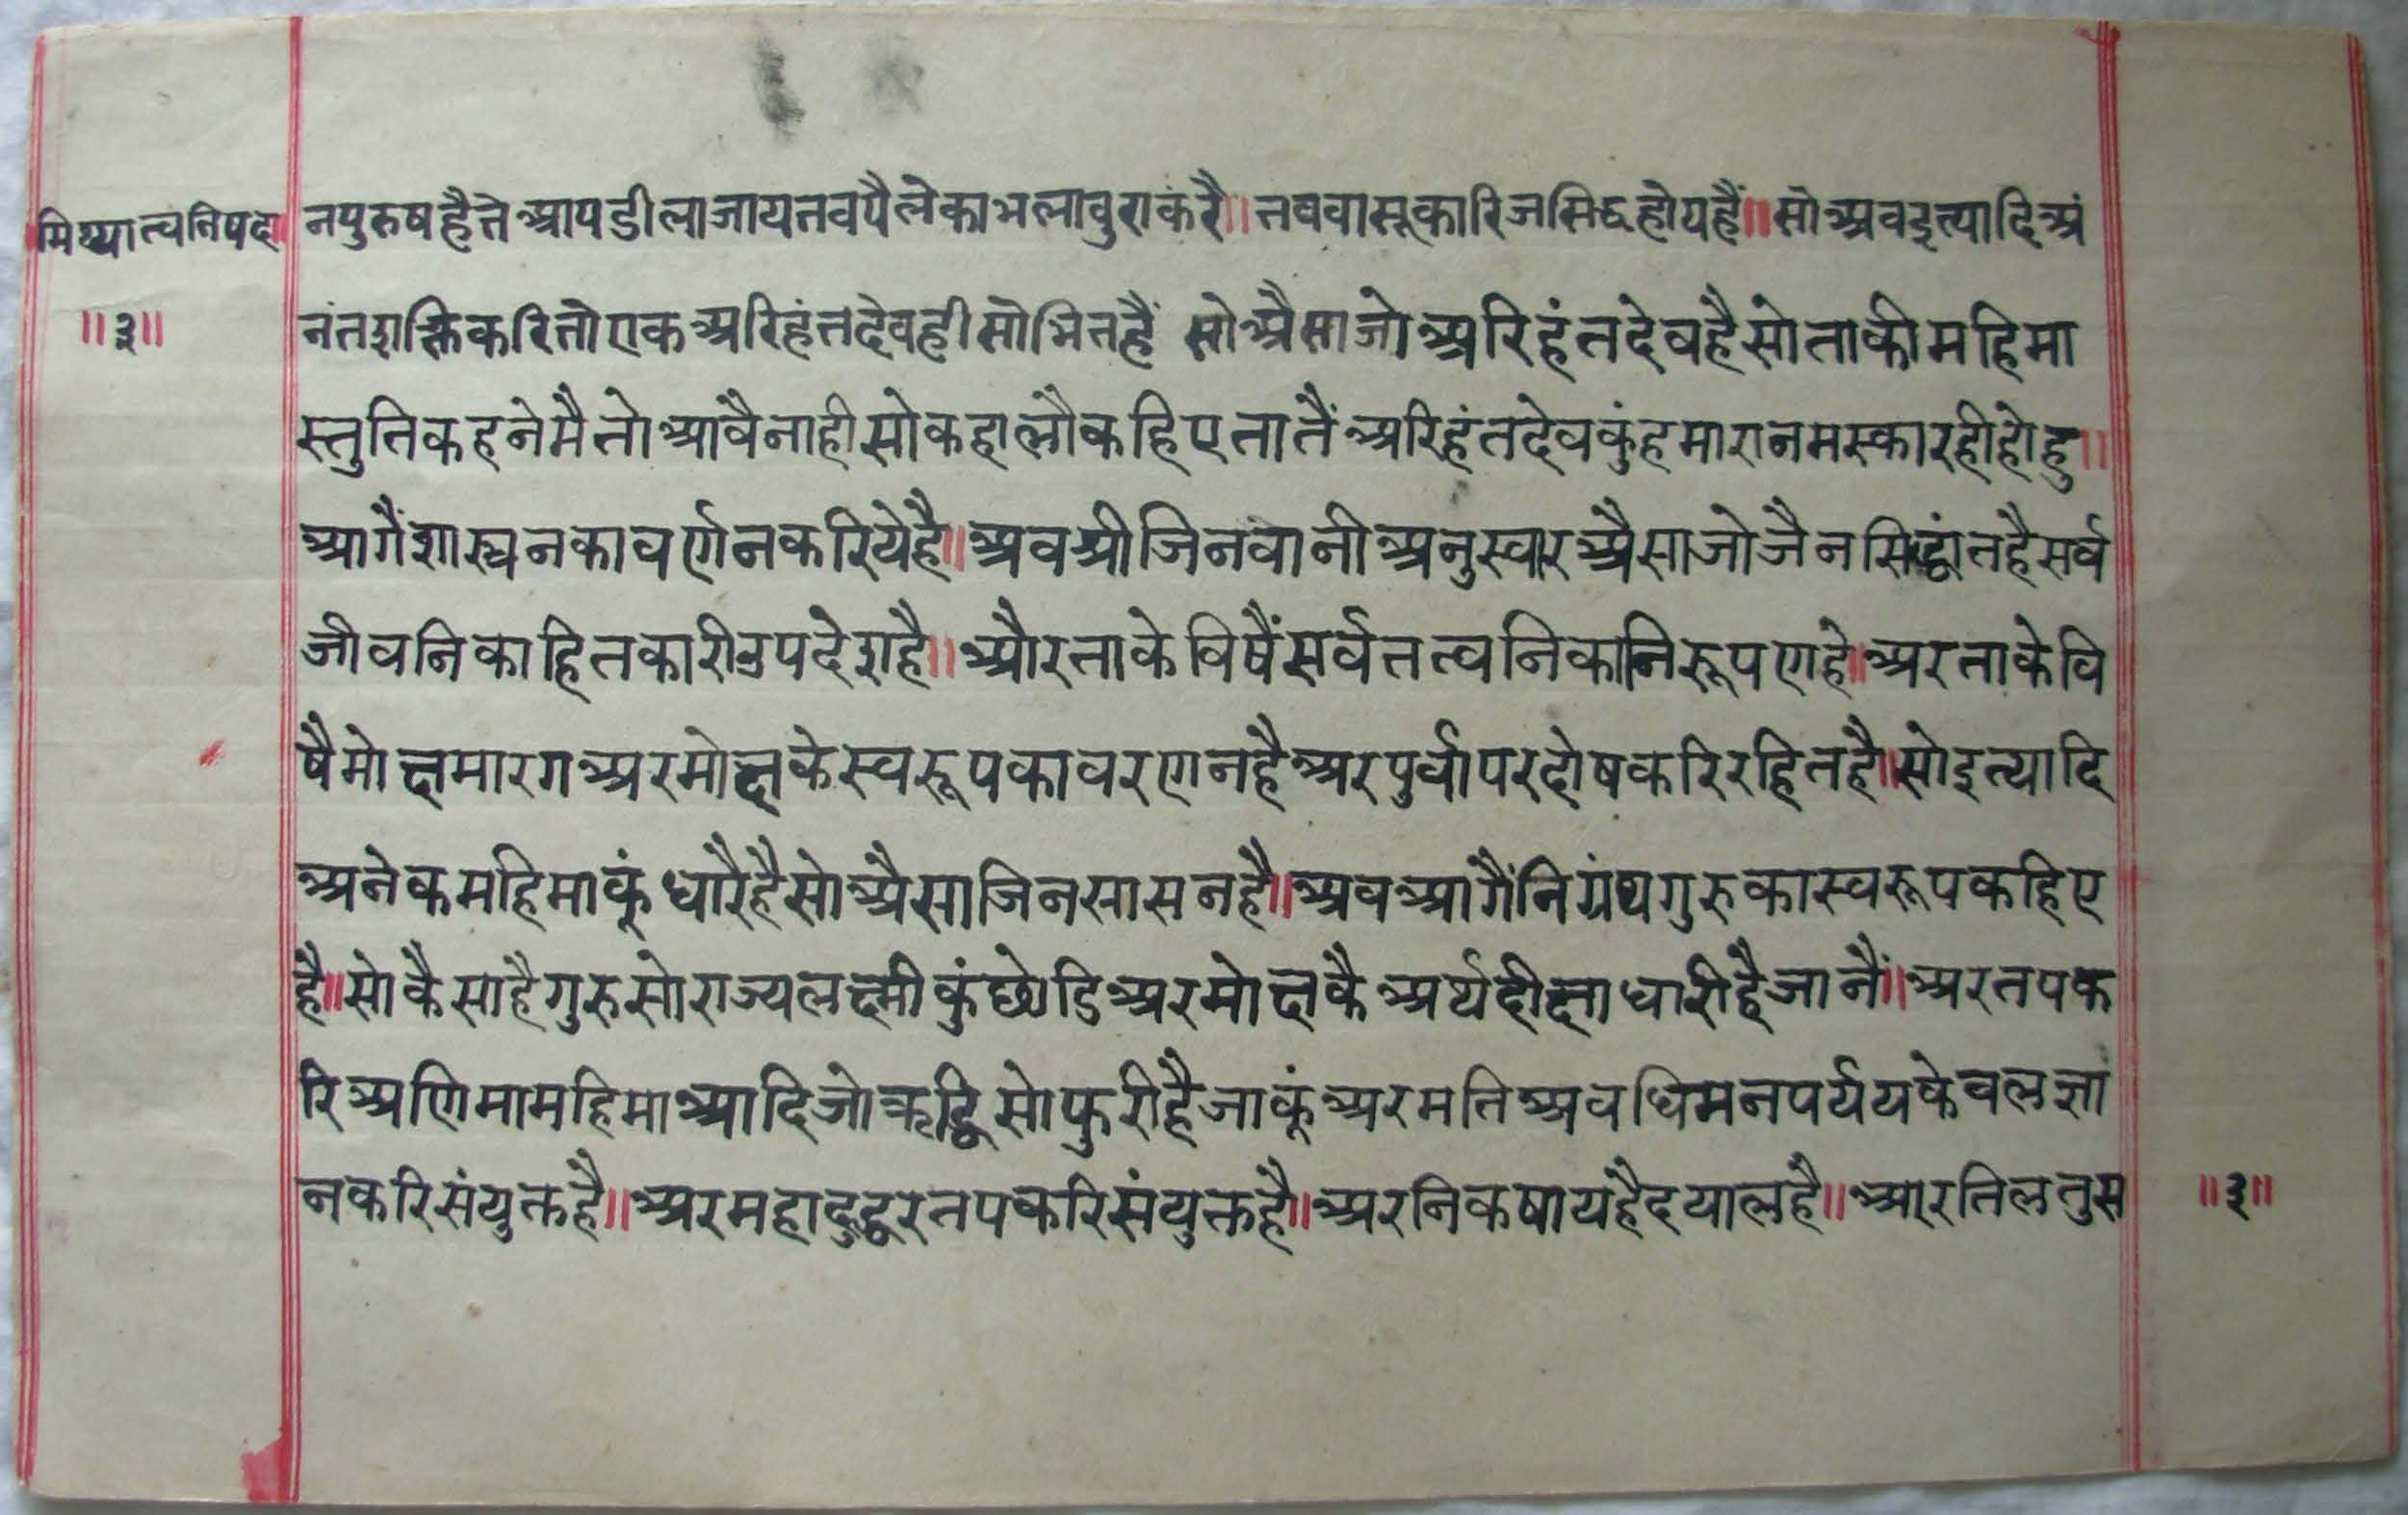 मिथ्यात्वनिषद
नपुरुषहैतेआपडीलाजायतवपैलेकाभलावुराकरै॥तववासूकारिजसिद्धहोयहैं॥सोअवइत्यादिअं
॥३॥
नंतशक्तिकरितोएकअरिहंतदेवहीसोभितहैं सोअैसाजोअरिहंतदेवहैसोताकीमहिमा
स्तुतिकहनेमैतोआवैनाहीसोकहालौकहिएतातैंअरिहंतदेवकुंहमारानमस्कारहीहोहु॥
आगैंशास्त्रनकावर्णनकरियेहै॥अवश्रीजिनवानीअनुस्वारअैसाजोजैनसिद्धांतहैसर्व
जीवनिकाहितकारीउपदेशहै॥औरताकेविषैंसर्वतत्वनिकानिरूपणहे॥अरताकेवि
षैमोक्षमारगअरमोक्षकेस्वरूपकावरणनहैअरपुर्वापरदोषकरिरहितहै॥सोइत्यादि
अनेकमहिमाकूंधारैहैसोअैसाजिनसासनहै॥अवआगैंनिग्रंथगुरुकास्वरूपकहिए
है॥सोकैसाहैगुरुसोराज्यलक्ष्मीकुंछोडिअरमोक्षकैअर्थदीक्षाधारीहैजानैं॥अरतपक
रिअणिमामहिमाआदिजोऋद्धिसोफुरीहैजाकूंअरमतिअवधिमनपर्ययकेवलज्ञा
नकरिसंयुक्तहै॥अरमहादुद्धरतपकरिसंयुक्तहै॥अरनिकषायहैदयालहै॥आरतिलतुस
॥३॥